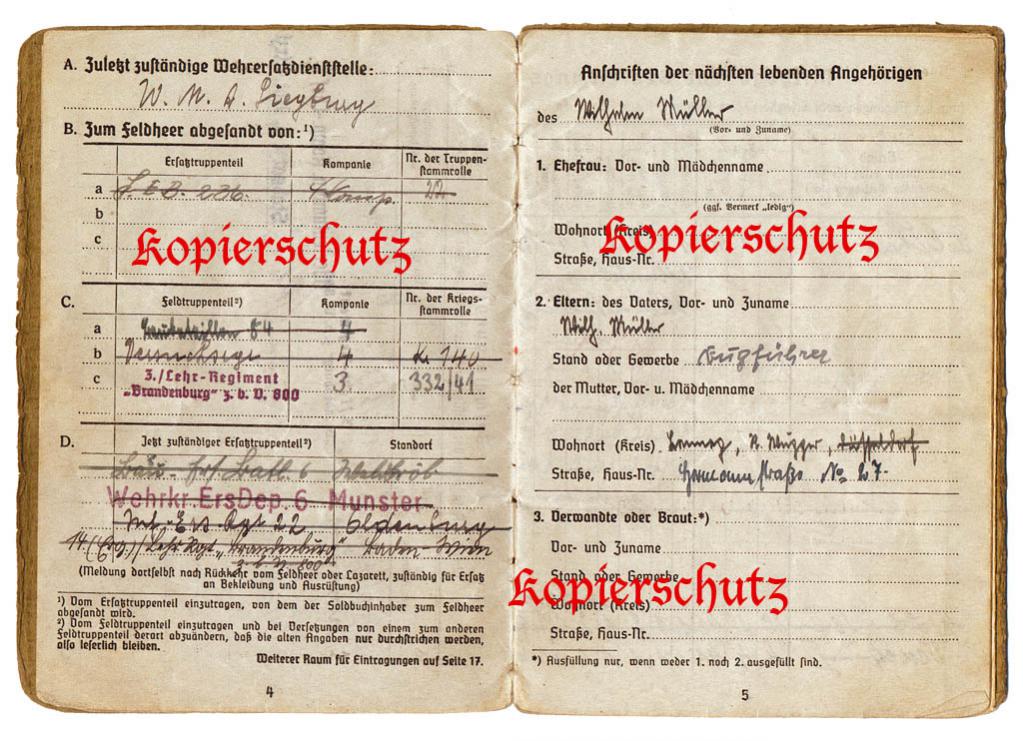 A. Zuletzt zuständige Wehrersatzdienststelle:
W. M. A. Siegburg
B. Zum Feldheer abgesandt von:¹)
Ersatztruppenteil Kompanie Nr. der Truppen-
stammrolle
a 4 Komp. 22
b
c
Kopierschutz
C. Feldtruppenteil²) Kompanie Nr. der Kriegs-
stammrolle
a Baubataillon 84 4
b 4 140
c 3./Lehr-Regiment 3. 332/41
„Brandenburg" z. b. V. 800
D. Jetzt zuständiger Ersatztruppenteil²) Standort
Bau-Ers. Batl. 6
Wehrkr.ErsDep. 6 Munster
Inf.-Ers. Rgt 22 Oldenburg
Lehr Rgt. „Brandenburg" Baden-Wien
z. b. V. 800
(Meldung dortselbst nach Rückkehr vom Feldheer oder Lazarett, zuständig für Ersatz
an Bekleidung und Ausrüstung)
¹) Vom Ersatztruppenteil einzutragen, von dem der Soldbuchinhaber zum Feldheer
abgesandt wird.
²) Vom Feldtruppenteil einzutragen und bei Versetzungen von einem zum anderen
Feldtruppenteil derart abzuändern, daß die alten Angaben nur durchstrichen werden,
also leserlich bleiben.
Weiterer Raum für Eintragungen auf Seite 17.
4
Anschriften der nächsten lebenden Angehörigen
des Wilhelm Müller
(Vor- und Zuname)
1. Ehefrau: Vor- und Mädchenname
(ggf. Vermerk „ledig")
Wohnort (Kreis)
Kopierschutz
Straße, Haus-Nr.
2. Eltern: des Vaters, Vor- und Zuname
Wilh. Müller
Stand oder Gewerbe Zugführer
der Mutter, Vor- u. Mädchenname
Wohnort (Kreis) Düsseldorf
Straße, Haus-Nr. Hermannstraße No 27.
3. Verwandte oder Braut:*)
Vor- und Zuname
Stand oder Gewerbe
Kopierschutz
Wohnort (Kreis)
Straße, Haus-Nr.
*) Ausfüllung nur, wenn weder 1. noch 2. ausgefüllt sind.
5